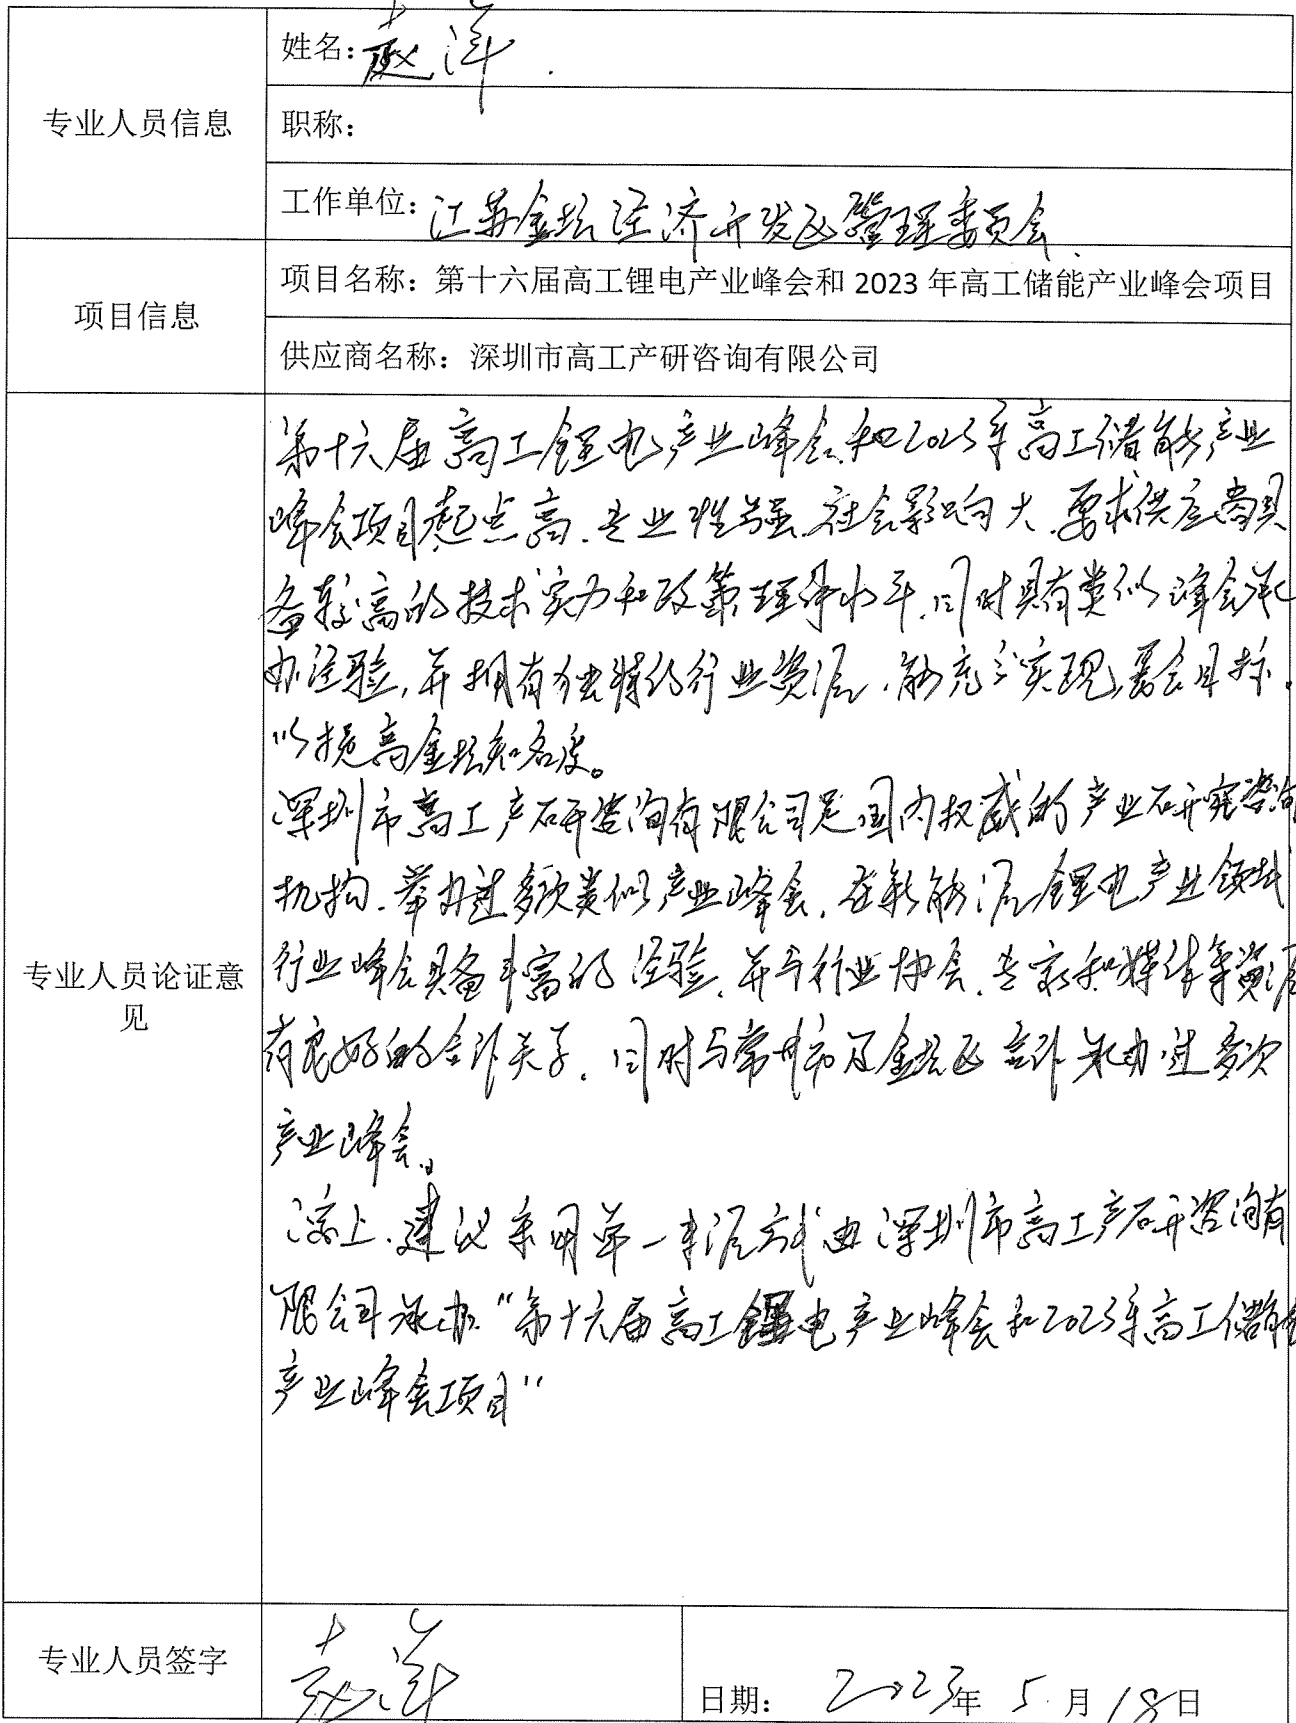 专业人员信息
姓名：赵洋
职称：
工作单位：江苏金坛经济开发区管理委员会
项目信息
项目名称：第十六届高工锂电产业峰会和 2023 年高工储能产业峰会项目
供应商名称：深圳市高工产研咨询有限公司
专业人员论证意
见
第十六届高工锂电产业峰会和2023年高工储能产业
峰会项目起点高、专业性强、社会影响大，要求供应商具
备较高的技术实力和政策理论水平，同时具有类似峰会承
办经验，并拥有独特的行业资源，能充分实现 会目标，
以提高金坛知名度。
深圳市高工产研咨询有限公司是国内权威的产业研究咨询
机构，举办过多次类似产业峰会，在新能源、锂电产业领域
行业峰会具备丰富的经验，并与行业协会、专家和媒体等资源
有良好的合作关系，同时与常州市及金坛区合作承办过多次
产业峰会。
综上，建议采用单一来源方式由深圳市高工产研咨询有
限公司承办“第十六届高工锂电产业峰会和2023年高工储能
产业峰会项目”
专业人员签字
赵洋
日期： 2023年 5 月 18日